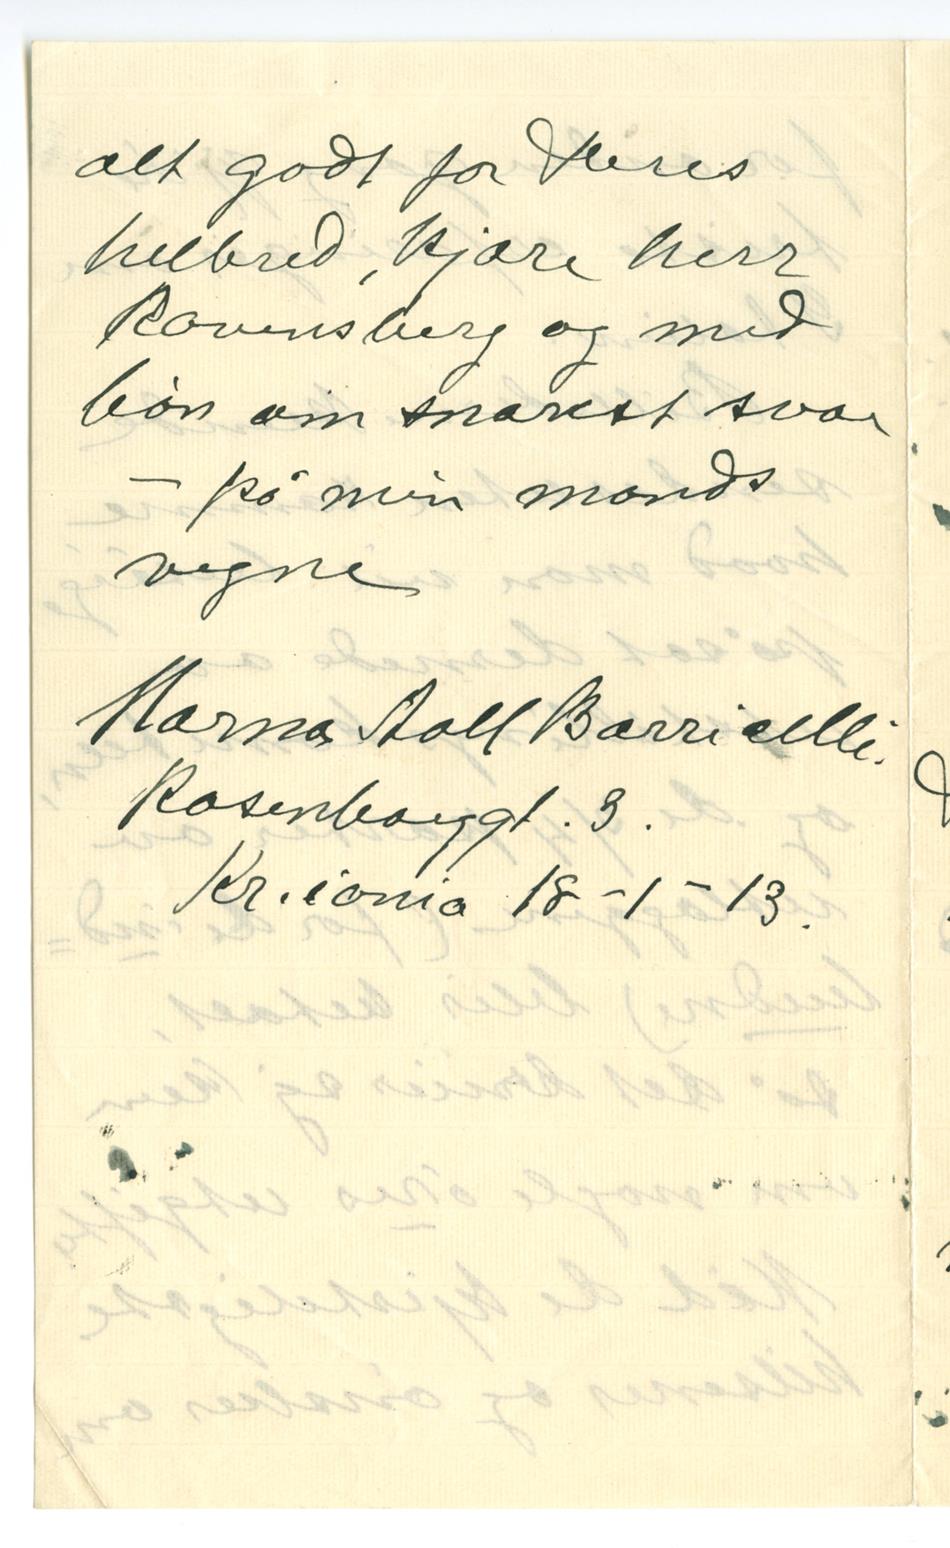 alt godt for Deres
helbred, kjære herr
Ravensberg og med
bön om snarest svar
– på min mands
vegne
Marna Aall Barricelli.
Rosenborggt. 3.
Kr.iania 18-1-13.